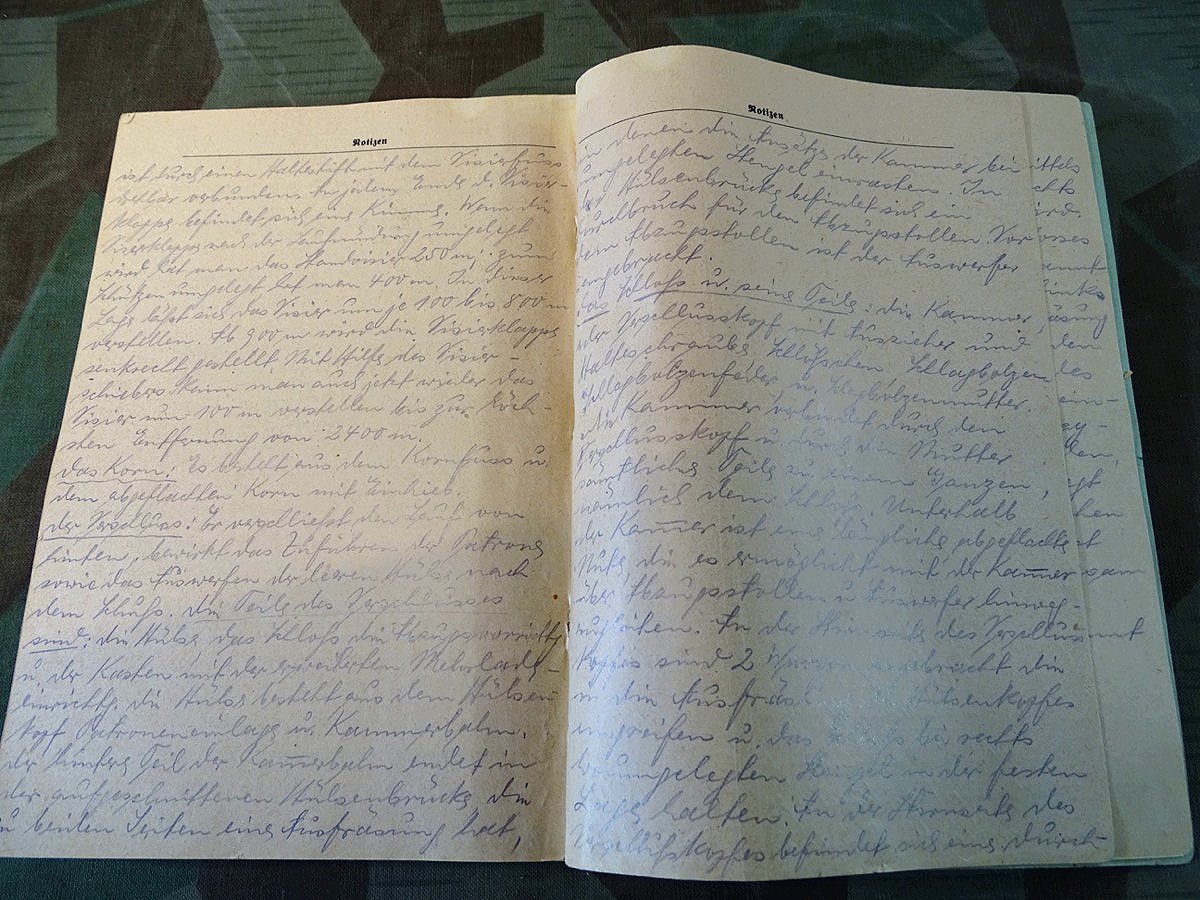 Notizen
ist durch einen Haltestift mit dem Visierfuss
verbunden. An jedem Ende d. Visier-
klappe befindet sich eine Kimme. Wenn die
Visierklappe nach der Laufmündung umgelegt
wird hat man das Standvisier 250 m, zum
Schützen umgelegt hat man 400 m. In dieser
Lage läßt sich das Visier um je 100 bis 800 m
verstellen. Ab 900 m wird die Visierklappe
senkrecht gestellt. Mit Hilfe des Visier-
schiebers kann man auch jetzt wieder das
Visier um 100 m verstellen bis zur höch-
sten Entfernung von 2400 m.
das Korn: Es besteht aus dem Kornfuss u.
dem abgeflachten Korn mit Einhieb.
der Verschluss: Er verschließt den Lauf von
hinten, bewirkt das Zuführen der Patrone
sowie das Auswerfen der leeren Hülse nach
dem Schuß. die Teile des Verschlusses
sind: die Hülse, das Schloß die Abzugsvorrichtg
u. der Kasten mit der Mehrlade-
einrichtg. die Hülse besteht aus dem Hülsen-
kopf Patroneneinlage u. Kammerbahn.
der hintere Teil der Kam̅erbahn endet in
der aufgeschnittenen Hülsenbrücke die
zu beiden Seiten eine Ausfräsung hat,
Notizen
in denen die Ansätze der Kammer bei
umgelegten Stengel einrasten. In
der Hülsenbrücke befindet sich ein
für den Abzugstollen. Vor
dem Abzugstollen ist der Auswerfer
angebracht.
das Schloß u. seine Teile: die Kammer,
der Verschlusskopf mit Auszieher und
Halteschraube, Schlößchen Schlagbolzen
Schlagbolzenfeder, u. Schlagbolzenmutter.
die Kammer verbindet durch den
Verschlusskopf u. durch die Mutter
sämtliche Teile zu einem Ganzen,
nämlich dem Schloß. Unterhalb
der Kam̅er ist eine längliche abgeflachte
Nute, die es ermöglicht mit der Kam̅er
über Abzugstollen u. Auswerfer hinweg-
zugleiten. An der Stirnseite des Verschluss
kopfes sind 2 Warzen angebracht die
in die Ausfräs Hülsenkopfes
eingreifen u. das bei rechts
herumgelegten Stengel in der festen
Lage halten. An der Stirnseite des
Verschlußkopfes befindet sich eine durch-